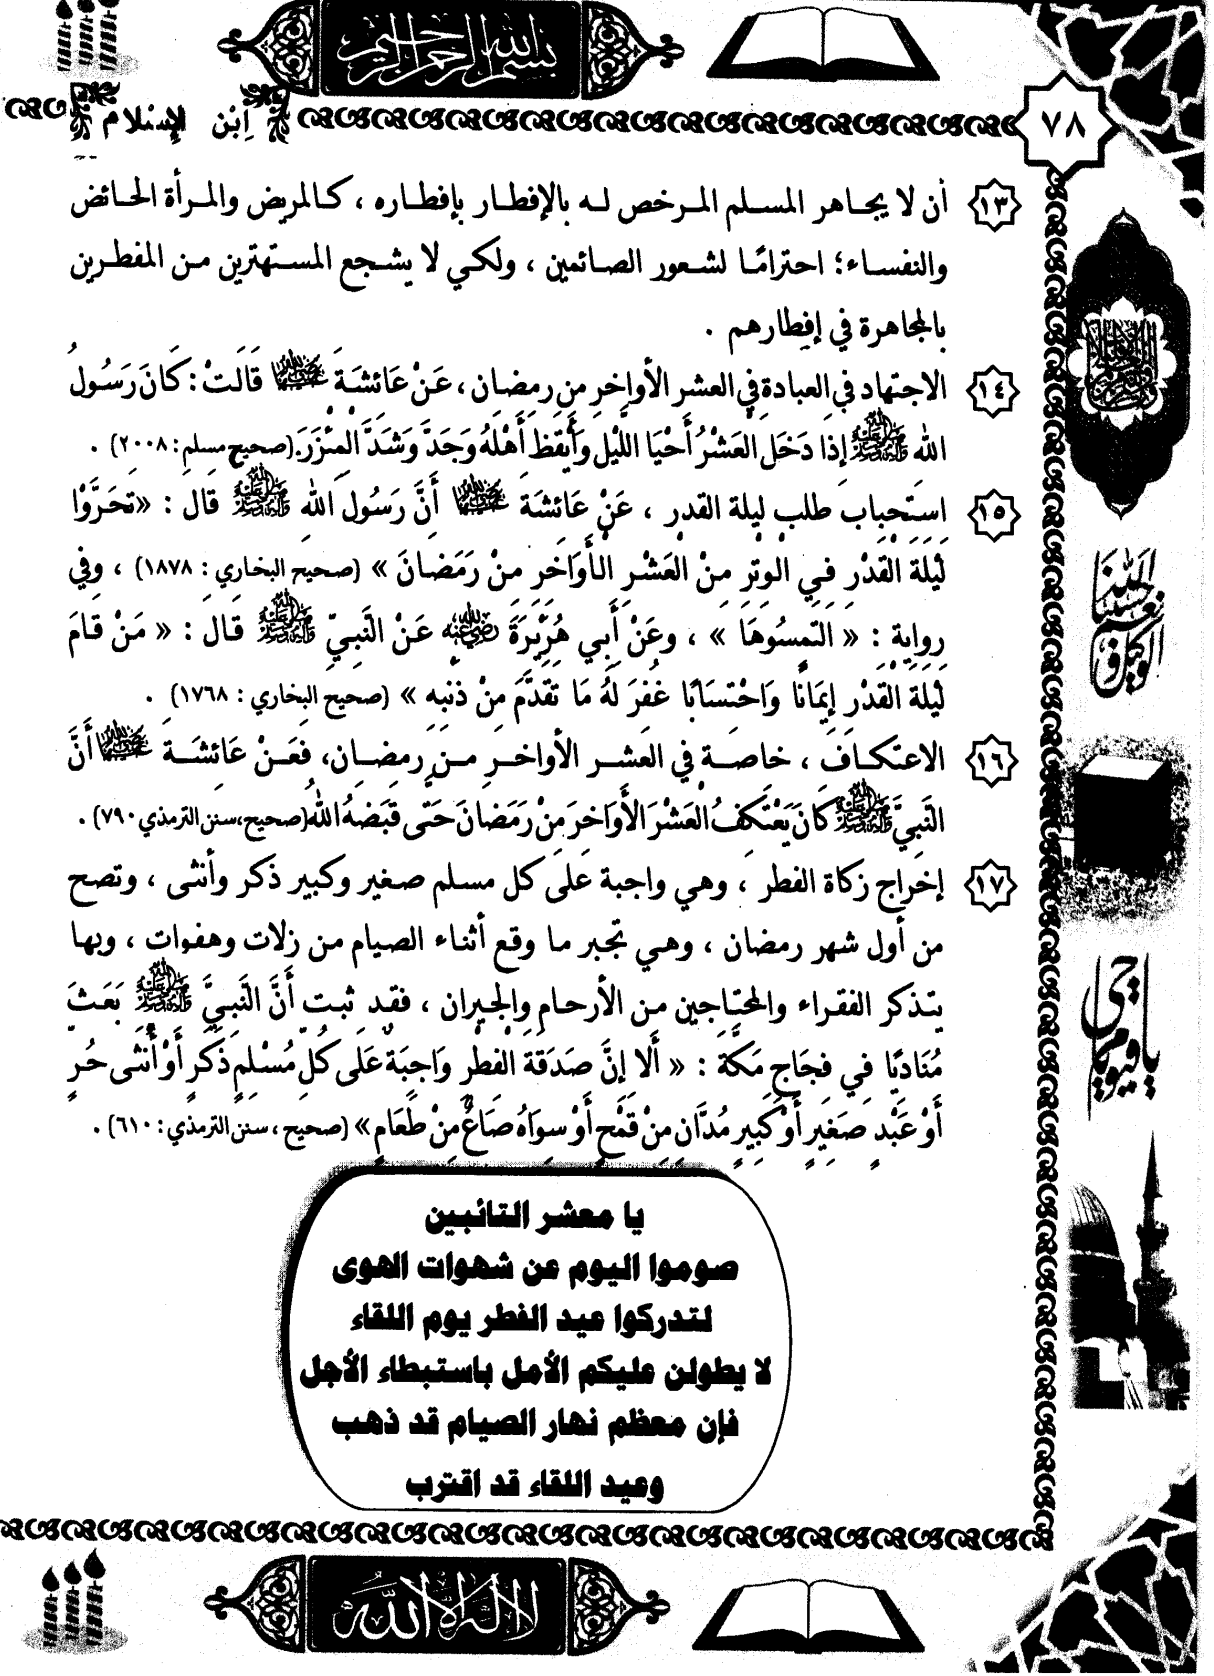 بسم الله الرحمن الرحيم
٧٨
ابْن الإسْلام
١٣ أن لا يجاهر المسلم المرخص له بالإفطار بإفطاره ، كالمريض والمرأة الحائض
والنفساء؛ احترامًا لشعور الصائمين ، ولكي لا يشجع المستهترين من المفطرين
بالمجاهرة في إفطارهم .
١٤ الاجتهاد في العبادة في العشر الأواخر من رمضان ، عَنْ عَائِشَةَ رضي الله عنها قَالَتْ : كَانَ رَسُولُ
الله ﷺ إِذَا دَخَلَ الْعَشْرُ أَحْيَا اللَّيْلَ وَأَيْقَظَ أَهْلَهُ وَجَدَّ وَشَدَّ الْمِئْزَرَ. (صحيح مسلم : ٢٠٠٨) .
١٥ استحباب طلب ليلة القدر ، عَنْ عَائِشَةَ رضي الله عنها أَنَّ رَسُولَ اللهِ ﷺ قال : «تَحَرَّوْا
لَيْلَةَ الْقَدْرِ فِي الْوِتْرِ مِنْ الْعَشْرِ الْأَوَاخِرِ مِنْ رَمَضَانَ » (صحيح البخاري : ١٨٧٨) ، وفي
رواية : « الْتَمِسُوهَا » ، وعَنْ أَبِي هُرَيْرَةَ رضي الله عنه عَنْ النَّبِيِّ ﷺ قَالَ : « مَنْ قَامَ
لَيْلَةَ الْقَدْرِ إِيمَانًا وَاحْتِسَابًا غُفِرَ لَهُ مَا تَقَدَّمَ مِنْ ذَنْبِهِ » (صحيح البخاري : ١٧٦٨) .
١٦ الاعتكاف ، خاصة في العشر الأواخر من رمضان، فعَنْ عَائِشَةَ رضي الله عنها أَنَّ
النَّبِيَّ ﷺ كَانَ يَعْتَكِفُ الْعَشْرَ الْأَوَاخِرَ مِنْ رَمَضَانَ حَتَّى قَبَضَهُ اللهُ (صحيح،سنن الترمذي ٧٩٠) .
١٧ إخراج زكاة الفطر ، وهي واجبة على كل مسلم صغير وكبير ذكر وأنثى ، وتصح
من أول شهر رمضان ، وهي تجبر ما وقع أثناء الصيام من زلات وهفوات ، وبها
يتذكر الفقراء والمحتاجين من الأرحام والجيران ، فقد ثبت أَنَّ النَّبِيَّ ﷺ بَعَثَ
مُنَادِيًا فِي فِجَاجِ مَكَّةَ : « أَلَا إِنَّ صَدَقَةَ الْفِطْرِ وَاجِبَةٌ عَلَى كُلِّ مُسْلِمٍ ذَكَرٍ أَوْ أُنْثَى حُرٍّ
أَوْ عَبْدٍ صَغِيرٍ أَوْ كَبِيرٍ مُدَّانِ مِنْ قَمْحٍ أَوْ سِوَاهُ صَاعٌ مِنْ طَعَامٍ » (صحيح ، سنن الترمذي : ٦١٠) .
يا معشر التائبين
صوموا اليوم عن شهوات الهوى
لتدركوا عيد الفطر يوم اللقاء
لا يطولن عليكم الأمل باستبطاء الأجل
فإن معظم نهار الصيام قد ذهب
وعيد اللقاء قد اقترب
حسبنا الله ونعم الوكيل
يا حي يا قيوم
لا إله إلا الله